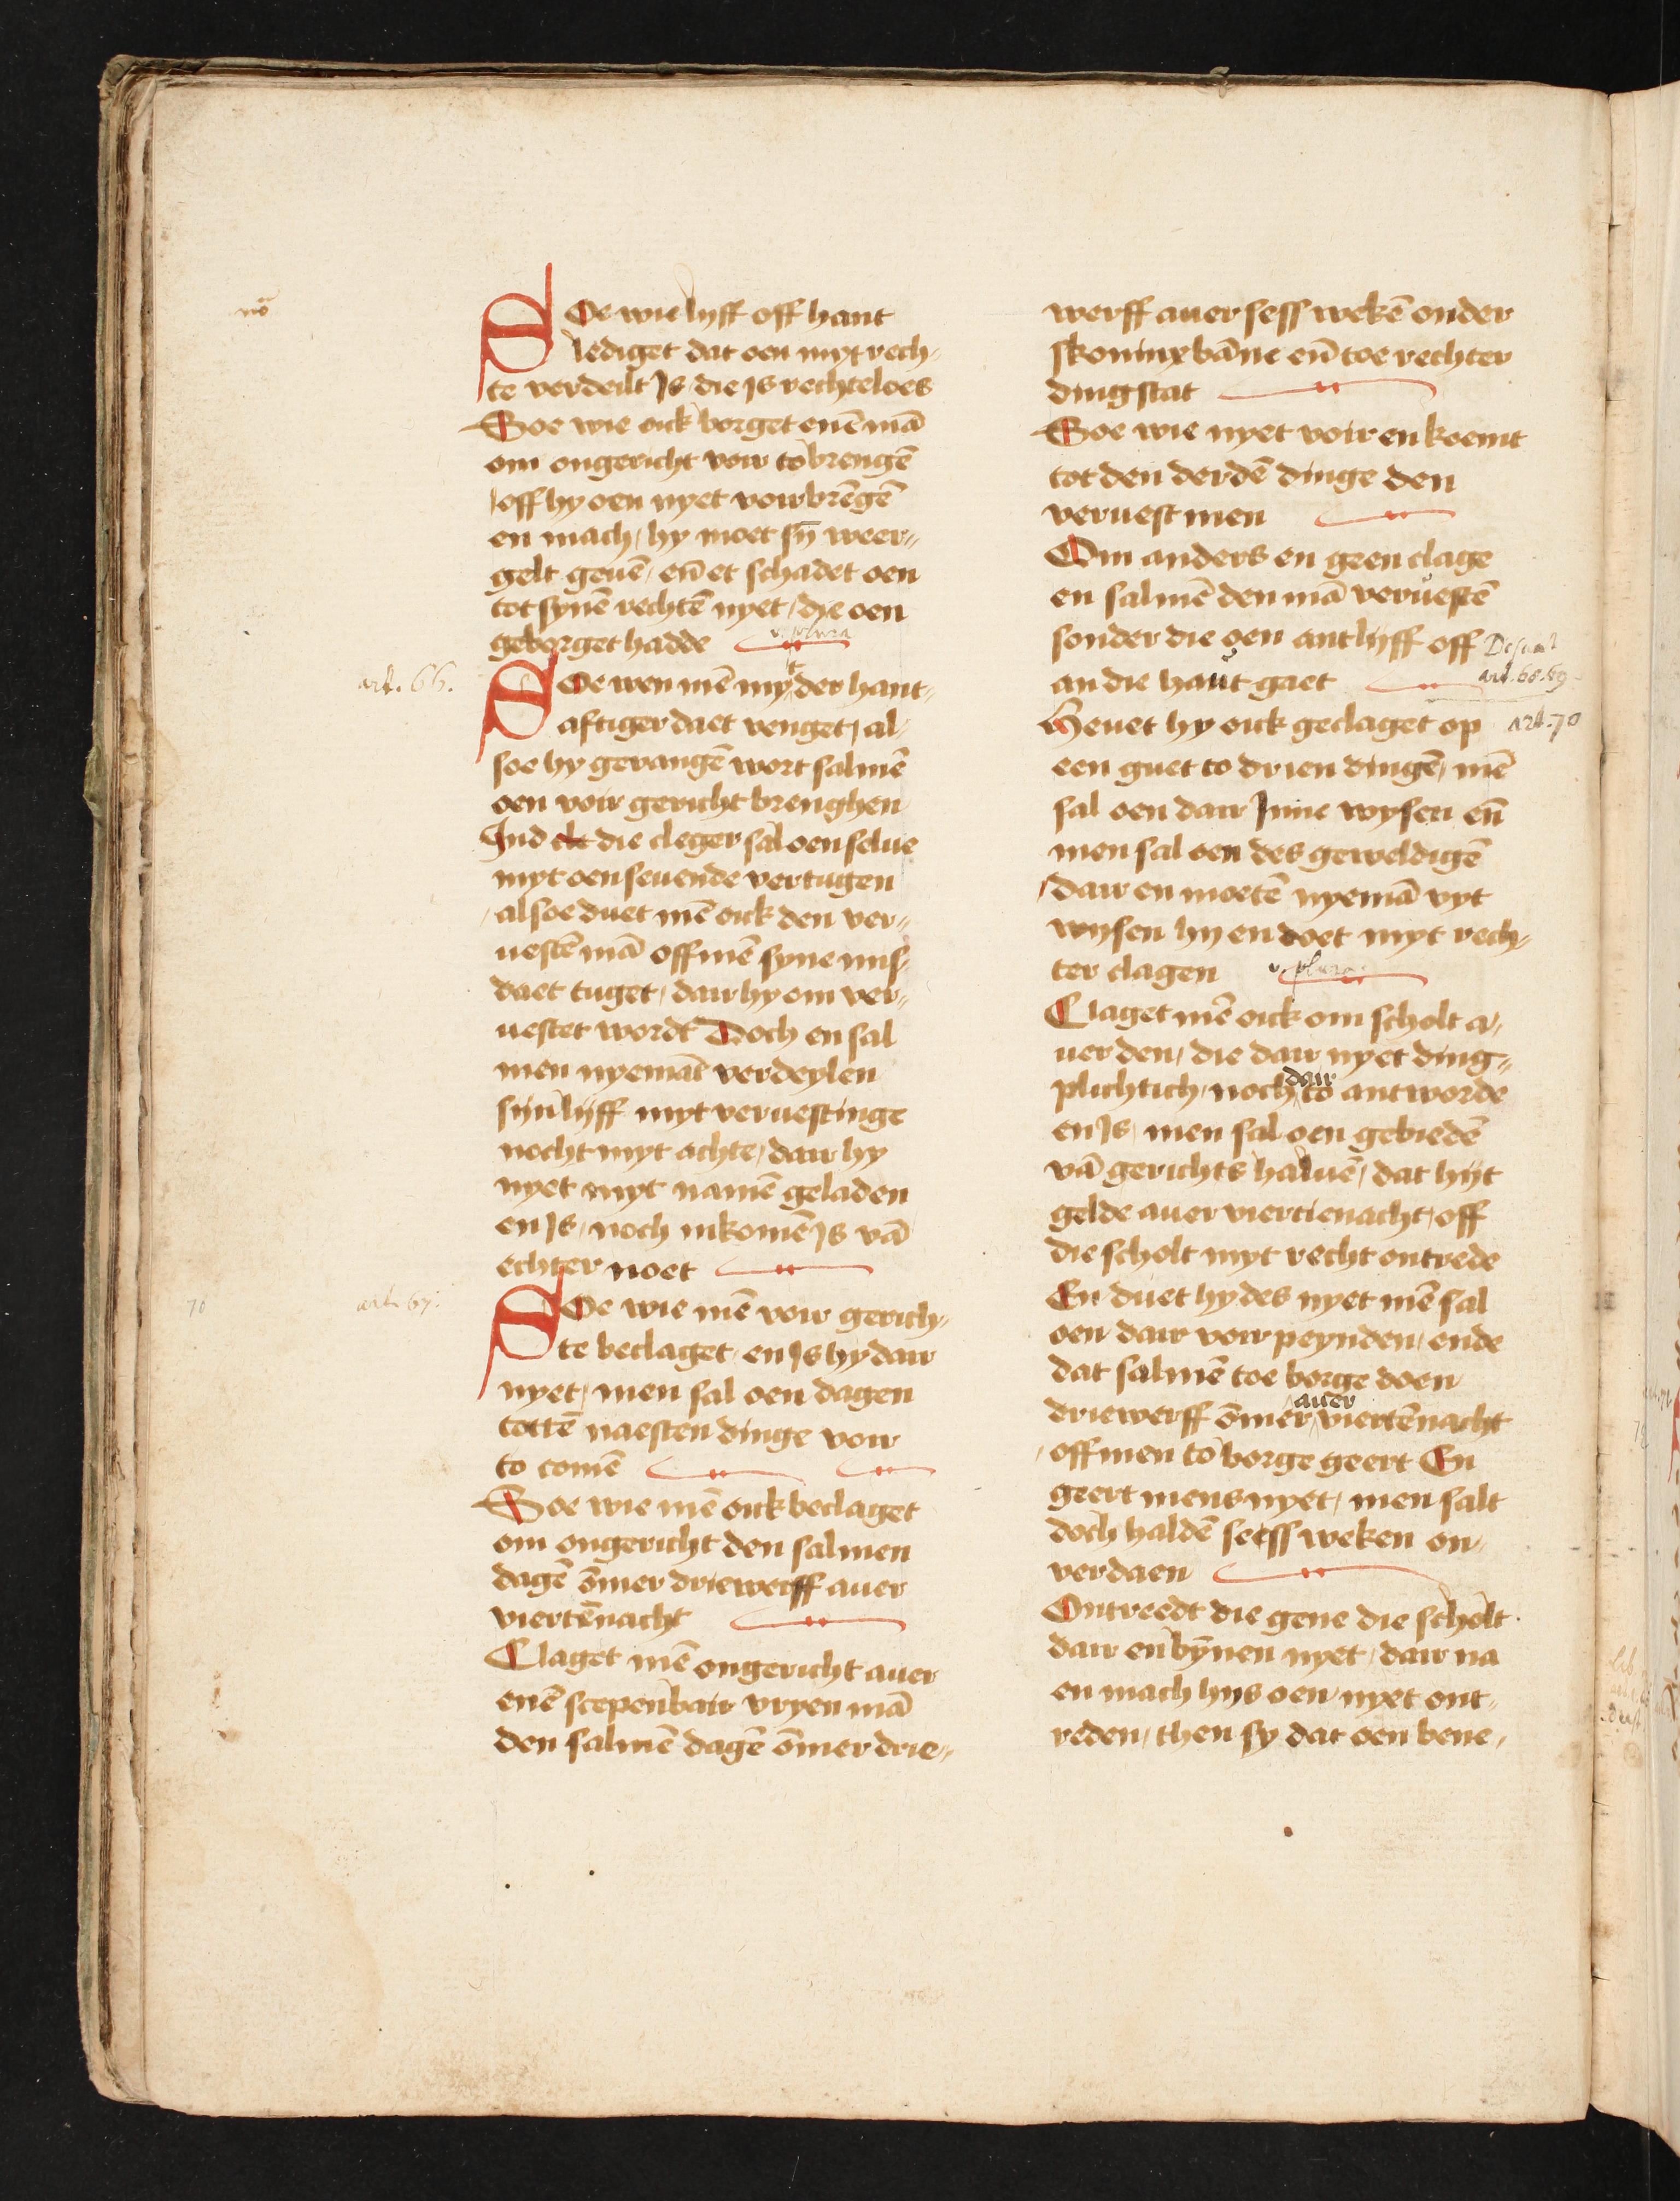 SOe wie lyff off hant
lediget dat oen myt rech-
te verdeilt Is die Is rechteloes
Soe wie oick borget enē mā
om ongericht voir to brengē
off hy oen nyet voirbrēgē
en mach / hy moet sȳ weer-
gelt geuē / eñ et schadet oen
tot synē rechtē nyet / die oen
geborget hadde
v. plura
art. 66.
SOe wen mē myt der hant-
aftiger daet venget / al-
soe hy gevangē wort salmē
oen voir gericht brenghen
Ind die cleger sal oen selue
myt oen seuende vertugen
alsoe duet mē oick den ver-
uestē mā off mē syne mis-
daet tuget / dair hy om ver-
uestet wordt Doch en sal
men nyemāt verdeylen
sijn lijff myt veruestinge
nocht myt achte / dair hy
nyet myt namē geladen
en Is / noch inkomē Is vā
echter noet
70
art. 67.
SOe wie mē voir gerich-
te beclaget / en Is hy dair
nyet / men sal oen dagen
tottē naesten dinge voir
to comē
Soe wie mē oick beclaget
om ongericht den salmen
dagē ōmer driewerff auer
viertēnacht
Claget mē ongericht auer
enē scepenbair vryen mā
den salmē dagē ōmer drie-
werff auer sess wekē onder
skoninx bāne eñ toe rechter
dingstat
Soe wie nyet voir en koemt
tot den derdē dinge den
veruest men
Om anders en geen clage
en salmē den mā veruestē
sonder die oen ant lijff off
an die haut gaet
Desunt
art. 68. 69
Heuet hy oick geclaget op
art. 70
een guet to drien dingē / mē
sal oen dair Inne wysen eñ
men sal oen des geweldigē
dair en moetē nyemā vyt
wysen hy en doet myt rech-
ter clagen
v. plura
Claget mē oick om scholt a-
uer den / die dair nyet ding-
plichtich / noch dair to antworde
en Is / men sal oen gebiedē
vā gerichts haluē / dat hijt
gelde auer viertienacht / off
die scholt myt recht ontrede
En duet hy des nyet mē sal
oen dair voir peynden / ende
dat salmē toe borge doen
driewerff ōmer auer viertēnacht
off men to borge geert En
geert mens nyet / men salt
doch haldē sess weken on-
verdaen
Ontreedt die gene die scholt
dair en bȳnen nyet / dair na
en mach hijs oen nyet ont-
reden / then sy dat oen bene-